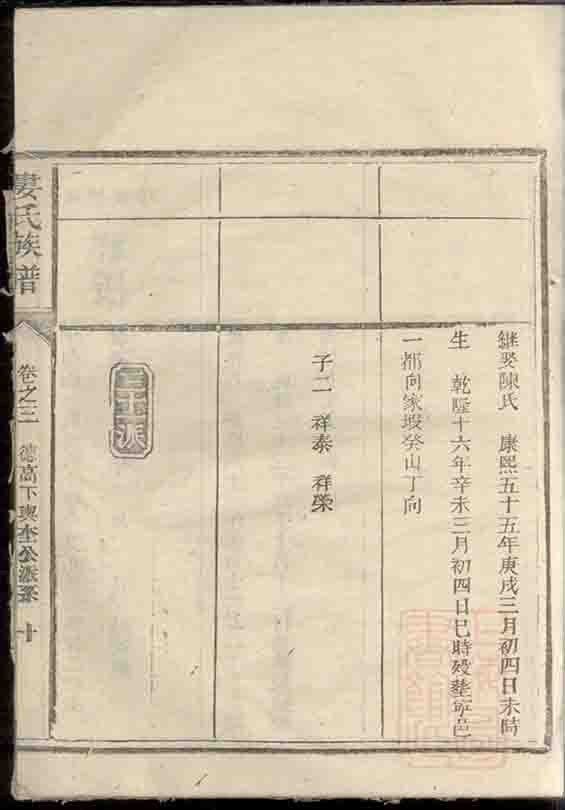 继娶陳氏 康熙五十五年庚戌三月初四日未時
生 乾隆十六年辛未三月初四日巳時殁塟寧邑
一都向家塅癸山丁向
子二 祥泰 祥榮
三玉派
婁氏族譜
卷之三 德高下輿 公派系 十